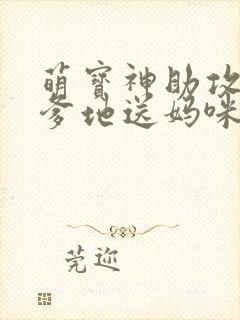 萌宝神助攻
爹地送妈咪
莞迩